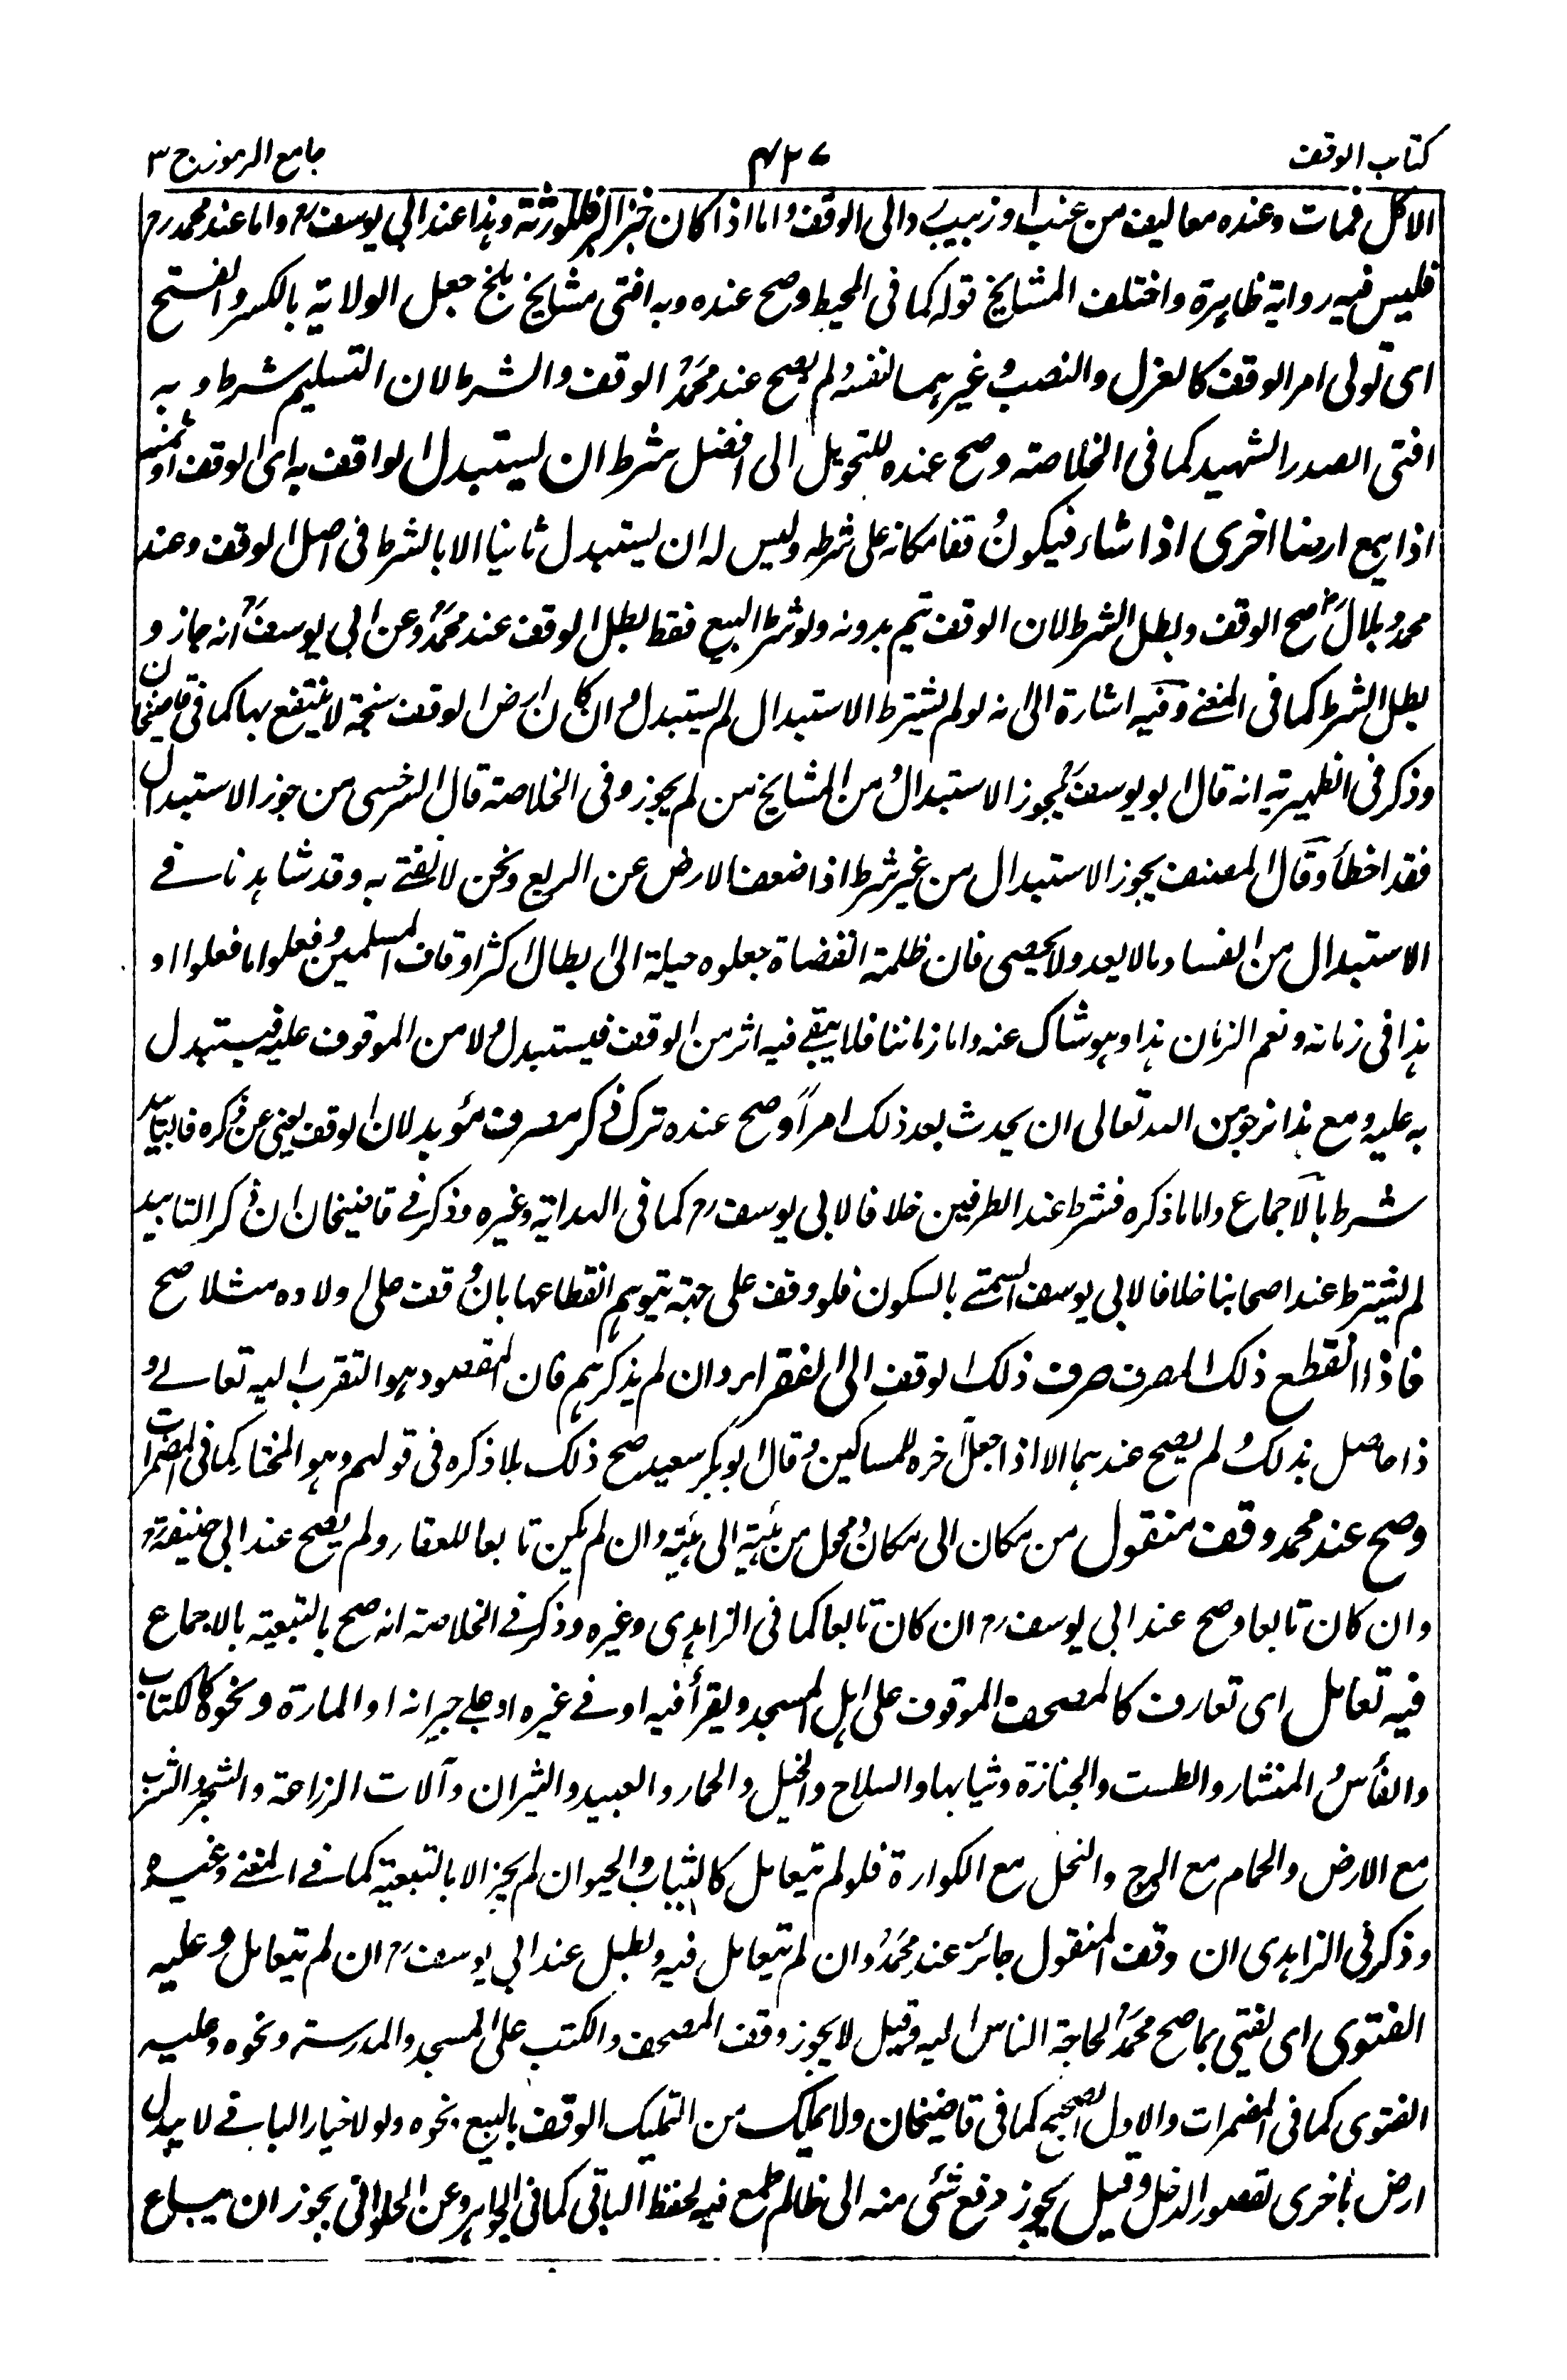 كتاب الوقف
٤٢٧
جامع الرموز ج ٣
الاكل فمات وعنده معاليف من عنب او زبيب دالى الوقف واما اذا كان خبز البر فللورثة وهذا عند ابى يوسف رح واما عند محمد رح
فليس فيه رواية ظاهرة واختلف المشايخ قوله كما فى المحيط وصح عنده وبه افتى مشايخ بلخ جعل الولاية بالكسر والفتح
اى تولى امر الوقف كالعزل والنصب وغيرهما لنفسه ولم يصح عند محمد رح الوقف والشرط لان التسليم شرط وبه
افتى الصدر الشهيد كما فى الخلاصة وصح عنده للتحويل الى افضل شرط ان يستبدل الواقف به اى الوقف او ثمنه
اذا بيع ارضا اخرى اذا شاء فيكون وقفا مكانه على شرطه وليس له ان يستبدل ثانيا الا بالشرط فى اصل الوقف وعند
محمد وهلال رح صح الوقف وبطل الشرط لان الوقف يتم بدونه ولو شرط البيع فقط بطل الوقف عند محمد رح وعن ابى يوسف رح انه جاز و
بطل الشرط كما فى المغنى وفيه اشارة الى انه لو لم يشترط الاستبدال لم يستبدل وان كان ارض الوقف سبخة لا ينتفع بها كما فى قاضيخان
وذكر فى الظهيرية انه قال ابو يوسف رح يجوز الاستبدال ومن المشايخ من لم يجوز وفى الخلاصة قال السرخسى من جوز الاستبدال
فقد اخطأ وقال المصنف يجوز الاستبدال من غير شرط اذا ضعف الارض عن الريع ونحن لا نفتى به وقد شاهدنا فى
الاستبدال من الفساد مالا يعد ولا يحصى فان ظلمة القضاة جعلوه حيلة الى ابطال اكثر اوقاف المسلمين وفعلوا ما فعلوا او
هذا فى زمانه ونعم الزمان هذا وهو شاك عنه واما زماننا فلا يبقى فيه اثر من الوقف فيستبدل ولا من الموقوف عليه فيستبدل
به عليه ومع هذا نرجو من الله تعالى ان يحدث بعد ذلك امرا وصح عنده ترك ذكر مصرف مؤبد لان الوقف يغنى عن ذكره فالتابيد
شرط بالاجماع واما ذكره فشرط عند الطرفين خلافا لابى يوسف رح كما فى الهداية وغيره وذكر فى قاضيخان ان ذكر التابيد
لم يشترط عند اصحابنا خلافا لابى يوسف السمتى بالسكون فلو وقف على جهة يتوهم انقطاعها بان وقف على اولاده مثلا صح
فاذا انقطع ذلك المصرف صرف ذلك الوقف الى الفقراء وان لم يذكرهم فان المقصود هو التقرب اليه تعالى و
ذا حاصل بذلك ولم يصح عندهما الا اذا جعل آخره للمساكين وقال ابو بكر سعيد صح ذلك بلا ذكره فى قولهم وهو المختار كما فى المضمرات
وصح عند محمد وقف منقول من مكان الى مكان ومحول من هيئة الى هيئة وان لم يكن تابعا للعقار ولم يصح عند ابى حنيفة رح
وان كان تابعا وصح عند ابى يوسف رح ان كان تابعا كما فى الزاهدى وغيره وذكر فى الخلاصة انه صح بالتبعية بالاجماع
فيه تعامل اى تعارف كالمصحف الموقوف على اهل المسجد ويقرأ فيه او فى غيره او على جيرانه او المارة ونحوه كالكتاب
والفأس والمنشار والطست والجنازة وثيابها والسلاح والخيل والحمار والعبيد والثيران وآلات الزراعة والشجر والشرب
مع الارض والحمام مع البرج والنحل مع الكوارة فلو لم يتعامل كالثياب والحيوان لم يجز الا بالتبعية كما فى المغنى وغيره
وذكر فى الزاهدى ان وقف المنقول جائز عند محمد رح وان لم يتعامل فيه وبطل عند ابى يوسف رح ان لم يتعامل وعليه
الفتوى اى يفتى بما صح محمد رح لحاجة الناس اليه وقيل لا يجوز وقف المصحف والكتب على المسجد والمدرسة ونحوه وعليه
الفتوى كما فى المضمرات والاول الصحيح كما فى قاضيخان ولا يملك من التمليك الوقف بالبيع ونحوه ولو لاخيار الباقى لا يبدل
ارض باخرى لقصور الدخل وقيل يجوز دفع شئى منه الى ظالم طمع فيه لحفظ الباقى كما فى الجواهر وعن الحلوانى يجوز ان يباع